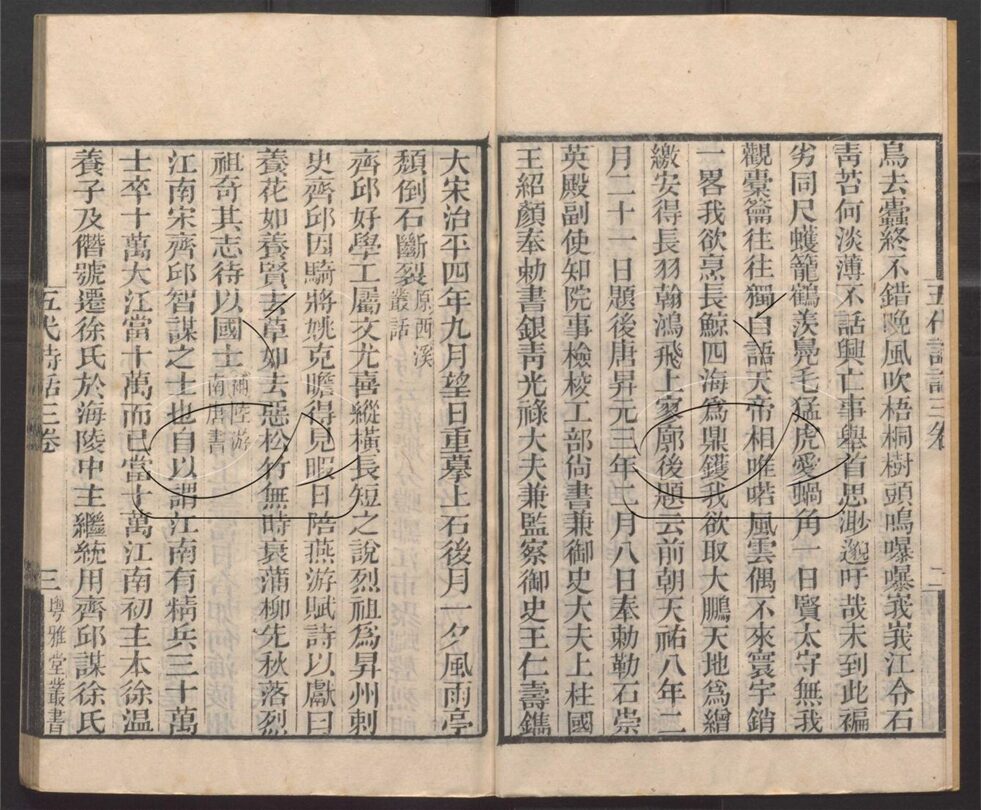 鳥去蠹終不錯晚風吹梧桐樹頭鳴嚗嚗峩峩江令石
靑苔何淡薄不話興亡事舉首思眇邈吁哉未到此褊
劣同尺蠖籠鶴羨鳧毛猛虎愛蝸角一日賢太守無我
觀橐籥往往獨自語天帝相唯喏風雲偶不來寰宇銷
一畧我欲烹長鯨四海爲鼎鑊我欲取大鵬天地爲繒
繳安得長羽翰鴻飛上寥廓後題云前朝天祐八年二
月二十一日題後唐昇元三年二月八日奉勅勒石崇
英殿副使知院事檢校工部尙書兼御史大夫上柱國
王紹顏奉勅書銀靑光祿大夫兼監察御史王仁壽鐫
五代詩話三卷
二
大宋治平四年九月望日重摹上石後月一夕風雨亭
頹倒石斷裂原西溪
叢話
齊邱好學工屬文尤喜縱橫長短之說烈祖爲昇州刺
史齊邱因騎將姚克瞻得見暇日陪燕游賦詩以獻曰
養花如養賢去草如去惡松竹無時衰蒲柳先秋落烈
祖奇其志待以國士補陸游
南唐書
江南宋齊邱智謀之士也自以謂江南有精兵三十萬
士卒十萬大江當十萬而已當十萬江南初主本徐温
養子及僭號遷徐氏於海陵中主繼統用齊邱謀徐氏
五代詩話三卷
三
粵雅堂叢書